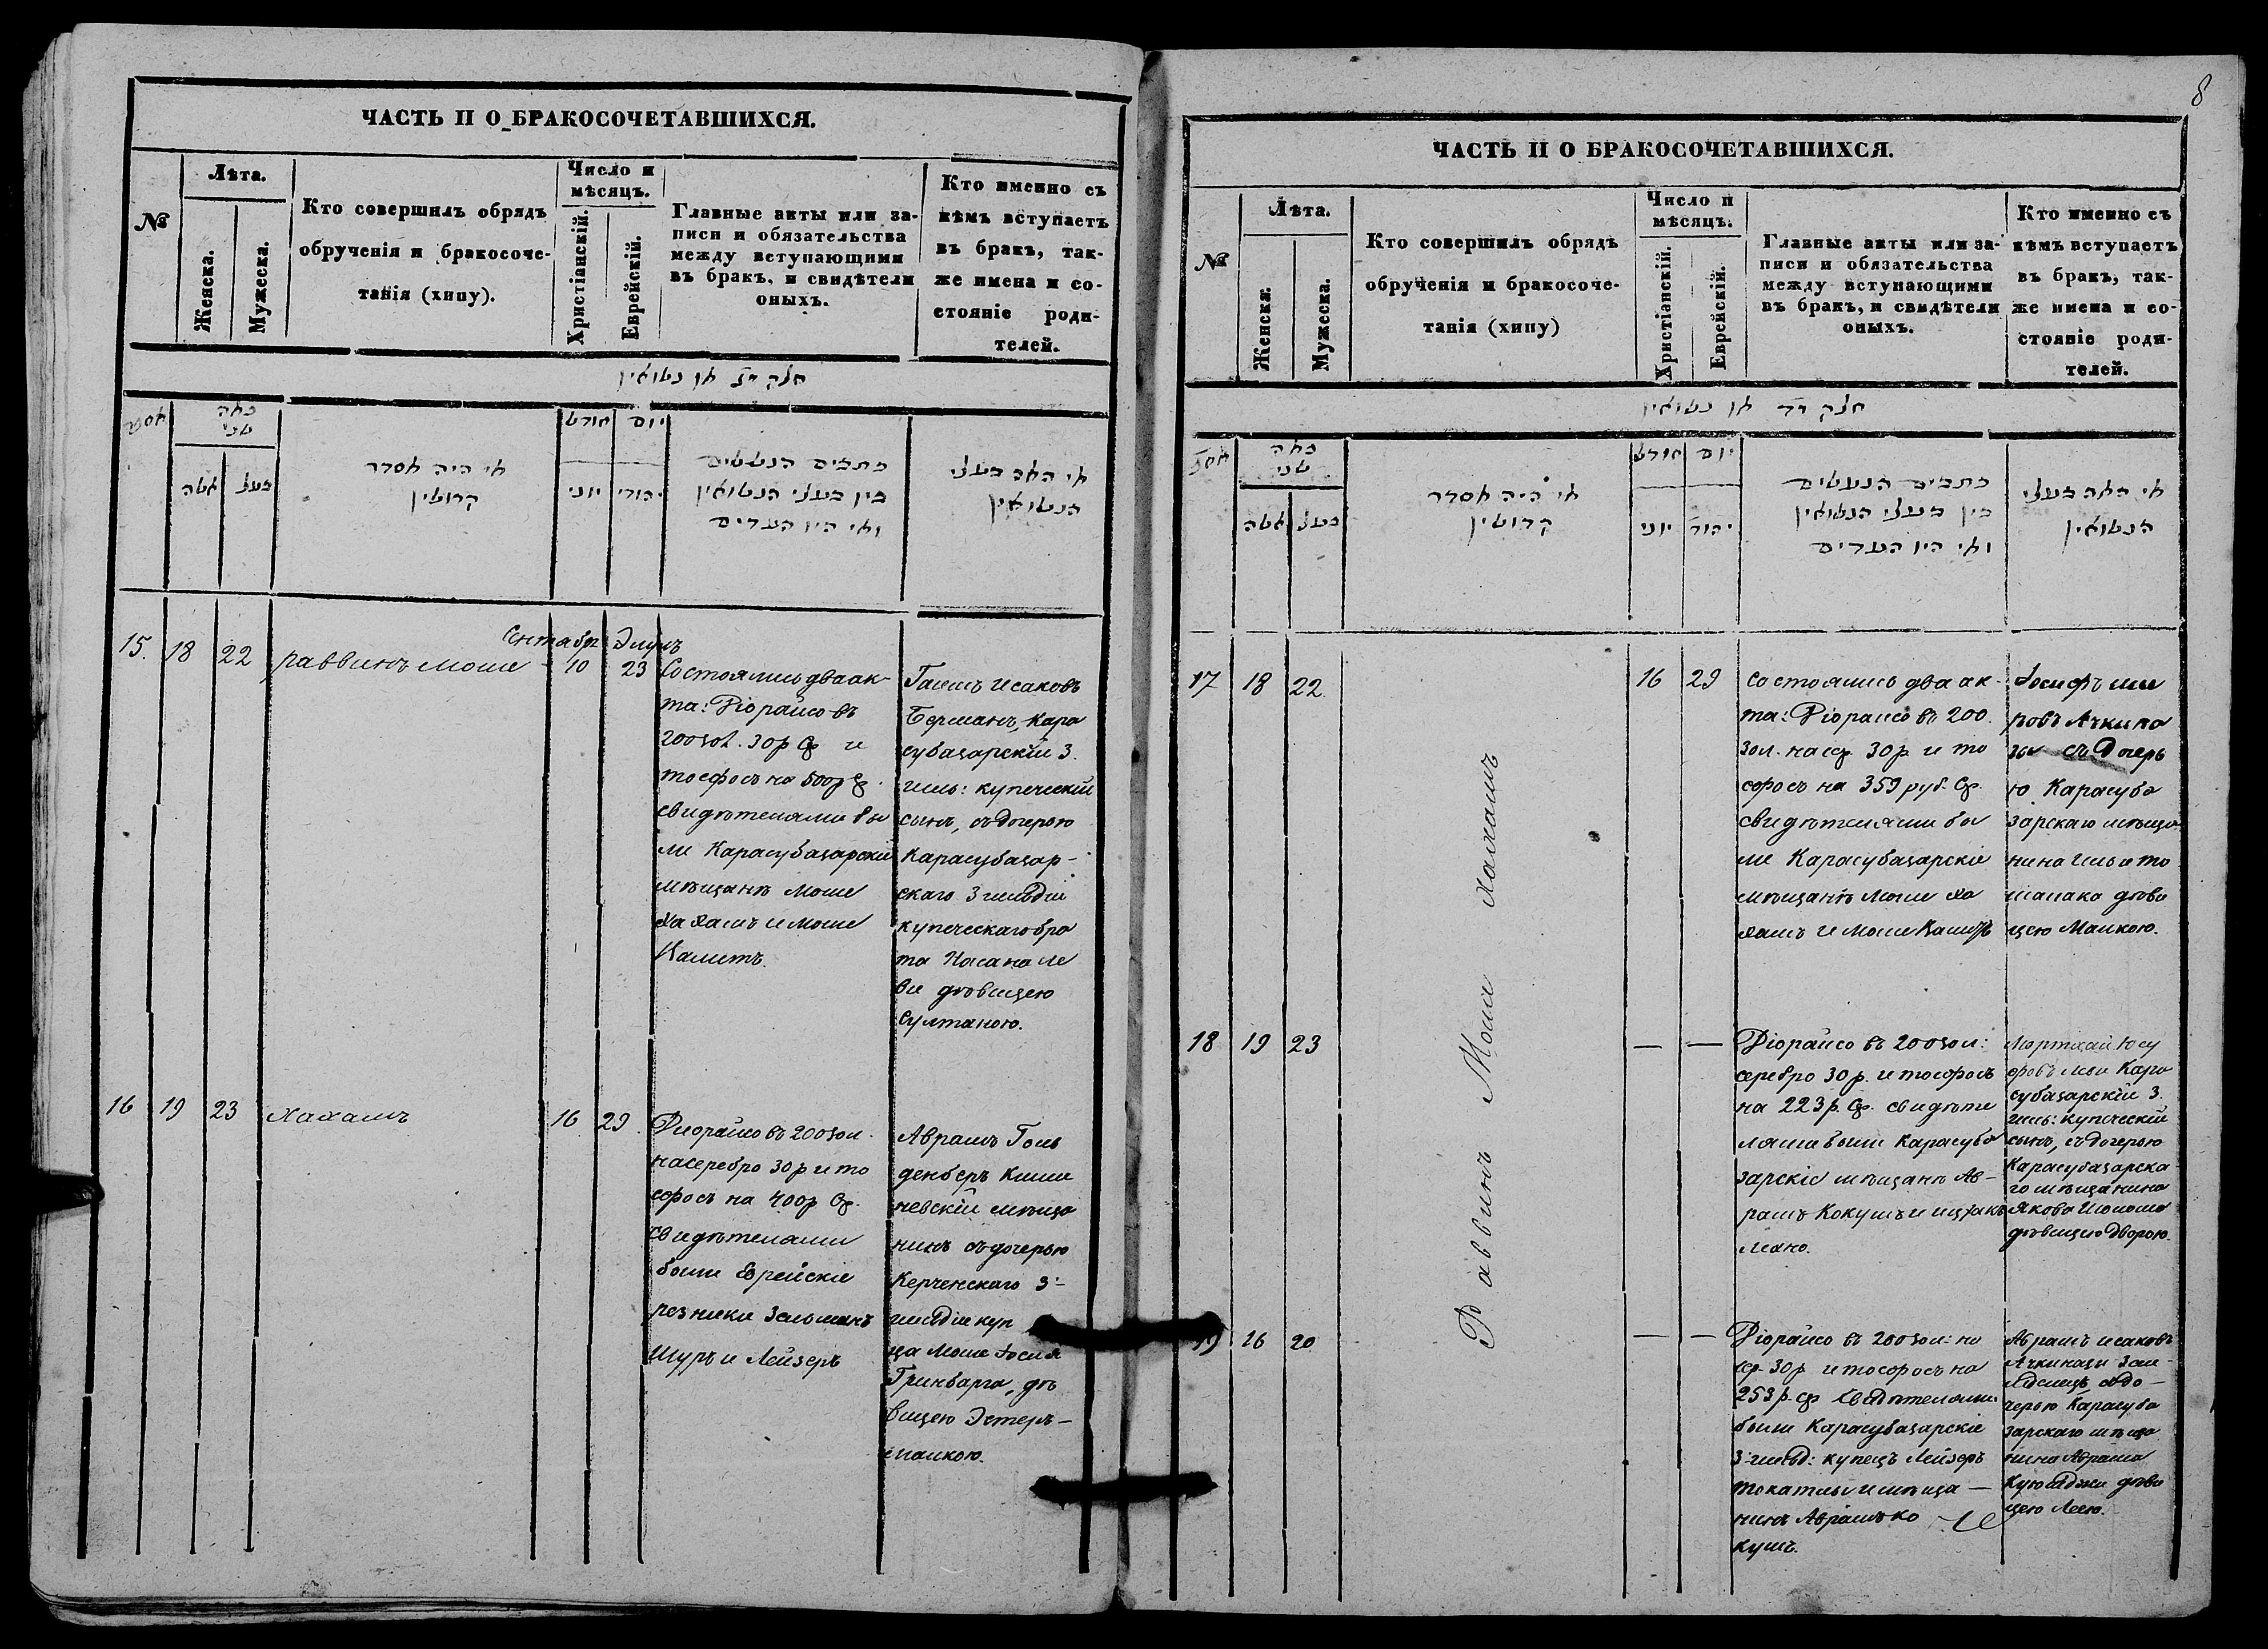 ЧАСТЬ II О БРАКОСОЧЕТАВШИХСЯ.
№
Лѣта.
Женска.
Мужеска.
Кто совершилъ обрядъ
обрученія и бракосоче-
танія (хипу).
Число и
мѣсяцъ.
Христіанскій.
Еврейскій.
Главные акты или за-
писи и обязательства
между вступающими
въ бракъ, и свидѣтели
оныхъ.
Кто именно съ
кѣмъ вступаетъ
въ бракъ, так-
же имена и со-
стояніе роди-
телей.
אשה
בעל
מי היה מסדר
קדושין
חודש
יום
יוני
יהודי
בין בעלי הנשואין
ומי היו העדים
הנשואין
Сентабр. Элулъ
15. 18 22 раввинъ моше 10 23
Состоялись два ак-
та: Ріорайсо въ
200 зол. 30 р ср и
тосфосъ на 500 р ср.
свидѣтелями бы
ли Карасубазарскіе
мѣщанъ моше
хахамъ и моше
Камитъ.
Исаковъ
Берманъ, Кара
субазарскій 3.
гиль: купеческій
сынъ, съ дочерью
Карасубазар-
скаго 3 гильдіи
купеческаго бра
та
ви дѣвицею
султаною.
16 19 23 Хахамъ 16 29.
Ріорайсо въ 200 зол.
на серебро 30 р и то
сфосъ на 400 р ср.
свидѣтелями
были Еврейскіе
резники Зельманъ
Шуръ и Лейзеръ
Аврамъ Голь
денберъ Киши
невскій мѣща
нинъ съ дочерью
Керченскаго 3-
гильдіи куп
ца Моше
Гринварга, дѣ
вицею Эстеръ-
малкою.
8
ЧАСТЬ II О БРАКОСОЧЕТАВШИХСЯ.
№
Лѣта.
Женска.
Мужеска.
Кто совершилъ обрядъ
обрученія и бракосоче-
танія (хипу)
Число и
мѣсяцъ.
Христіанскій.
Еврейскій.
Главные акты или за-
писи и обязательства
между вступающими
въ бракъ, и свидѣтели
оныхъ.
Кто именно съ
кѣмъ вступаетъ
въ бракъ, так-
же имена и со-
стояніе роди-
телей.
אשה
בעל
מי היה מסדר
קדושין
חודש
יום
יוני
יהודי
בין בעלי הנשואין
ומי היו העדים
הנשואין
Раввинъ Моше Хахамъ
17 18 22. 16 29
состоялись два ак-
та: Ріорайсо въ 200.
зол. на ср. 30 р. и то
сфосъ на 359 руб. ср.
свидѣтелями бы
ли Карасубазарскіе
мѣщанъ Моше Ха
хамъ и Моше
Іосифъ
ровъ Ачкина
зы съ дочерь
ю Карасуба
зарскаго мѣща
нина
дѣви
цею Малкою.
18 19 23 — —
Ріорайсо въ 200 зол:
серебро 30 р. и тосфосъ
на 223 р. ср. свидѣте
лями были Карасуба
зарскіе мѣщанъ Ав-
рамъ Кокушъ и
Мортхай Юсу
фовъ Кара
субазарскій 3.
гиль: купеческій
сынъ, съ дочерью
Карасубазарска-
го мѣщанина
Якова
дѣвицею Дворою.
19 16 20 — —
Ріорайсо въ 200 зол: на
ср. 30 р. и тосфосъ на
253 р. ср свидѣтелями
были Карасубазарскіе
3-гильд: купецъ Лейзеръ
Токатлы и мѣща —
нинъ Аврамъ ко
кушъ.
Аврамъ исаковъ
Ачкинази
съ до-
черью Карасуба
зарскаго мѣща
нина Аврама
дѣви
цею Леею.